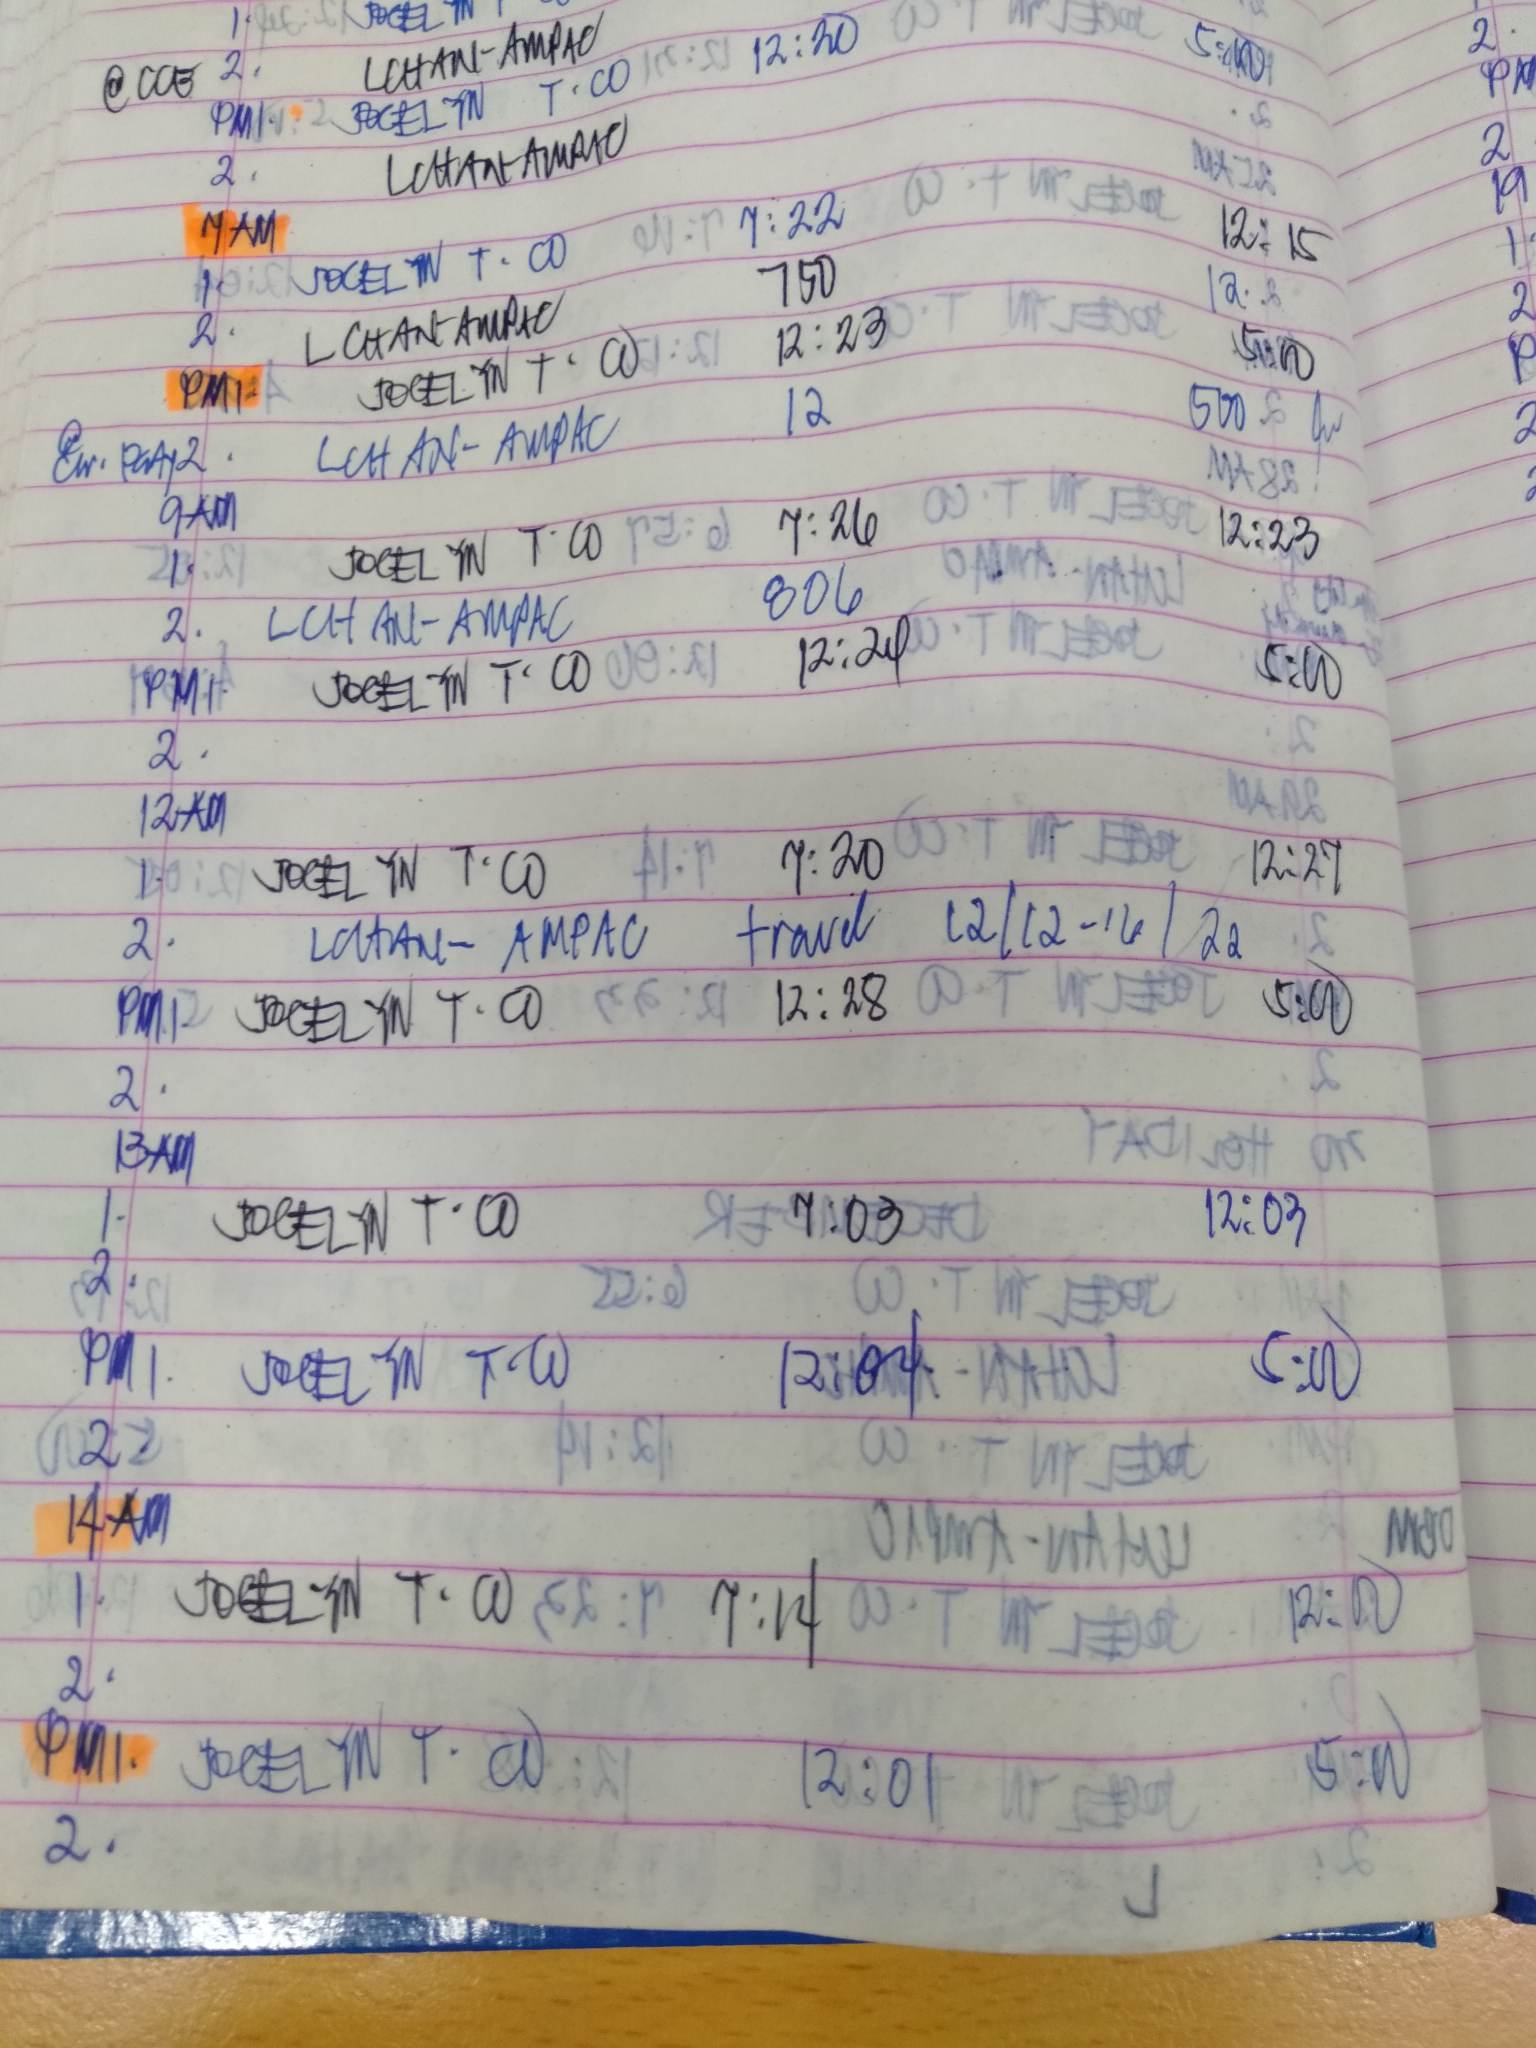 1. JOCELYN T. CO
@CCE 2. LCHAN-AMPAC 12:20 5:00
PM1. JOCELYN T. CO
2. LCHAN-AMPAC
7AM 7:22 12:15
1. JOCELYN T. CO 750 12
2. LCHAN-AMPAC 12:23 5:00
PM1. JOCELYN T. CO 12 500
2. LCHAN-AMPAC
9AM
1. JOCELYN T. CO 7:26 12:23
2. LCHAN-AMPAC 806
PM1. JOCELYN T. CO 12:24 5:00
2.
12AM
1. JOCELYN T. CO 7:20 12:27
2. LCHAN-AMPAC travel 12/12-16/22
PM1. JOCELYN T. CO 12:28 5:00
2.
13AM
1. JOCELYN T. CO 7:03 12:03
2.
PM1. JOCELYN T. CO 12:04 5:00
2
14AM
1. JOCELYN T. CO 7:14 12:00
2.
PM1. JOCELYN T. CO 12:01 5:00
2.